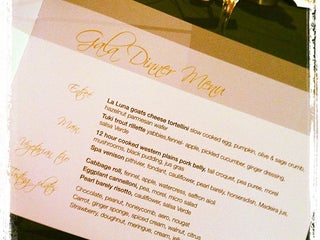 Gala Dinner Menu
Entrée
La Luna goats cheese tortellini slow cooked egg, pumpkin, olive & sage crumb,
hazelnut parmesan wafer
Tuki trout rillette yabbies, fennel, apple, pickled cucumber, ginger dressing,
salsa Verde
Main
12 hour cooked western plains pork belly, tail croquet, pea puree, morel
mushrooms, black pudding, jus gras
Spa venison pithivier, fondant, cauliflower, pearl barley, horseradish, Madeira jus,
Vegetarian
Cabbage roll, fennel, apple, watercress, saffron aioli
Eggplant cannelloni, pea, morel, micro salad
Pearl barely risotto, cauliflower, salsa Verde
plates
Chocolate, peanut, honeycomb, aero, nougat
Carrot, ginger sponge, spiced cream, walnut, citrus
Strawberry, doughnut, meringue, cream,